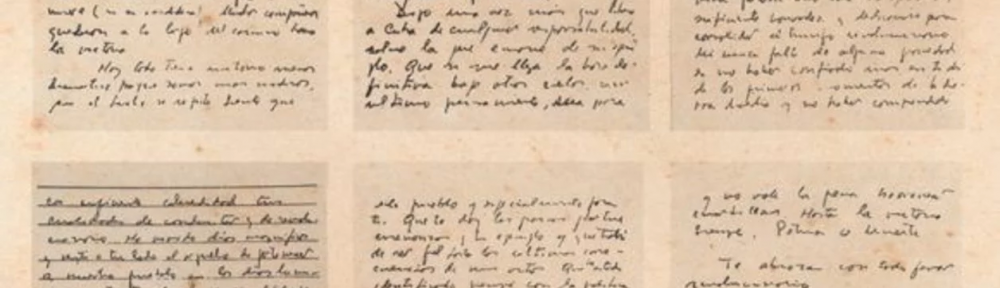 muere (si es verdadera). Muchos compañeros
quedaron a lo largo del camino hacia
la victoria.
Hoy todo tiene un tono menos
dramático porque somos más maduros,
pero el hecho se repite. Siento que
Digo una vez más que libero
a Cuba de cualquier responsabilidad,
salvo la que emane de su ejem-
plo. Que si me llega la hora de-
finitiva bajo otros cielos, mi
último pensamiento, será para
suficiente honradez y dedicación para
consolidar el triunfo revolucionario.
Mi única falta de alguna gravedad
es no haber confiado más en ti des-
de los primeros momentos de la Sie-
rra Maestra y no haber comprendido
con suficiente celeridad tus
cualidades de conductor y de revolu-
cionario. He vivido días magníficos
y sentí a tu lado el orgullo de pertenecer
a nuestro pueblo en los días lumino-
este pueblo y especialmente para
ti. Que te doy las gracias por tus
enseñanzas y tu ejemplo y que trataré
de ser fiel hasta las últimas conse-
cuencias de mis actos. Que he estado
identificado siempre con la política
y no vale la pena
cuartillas. Hasta la victoria
siempre. Patria o Muerte
Te abraza con todo fervor
revolucionario